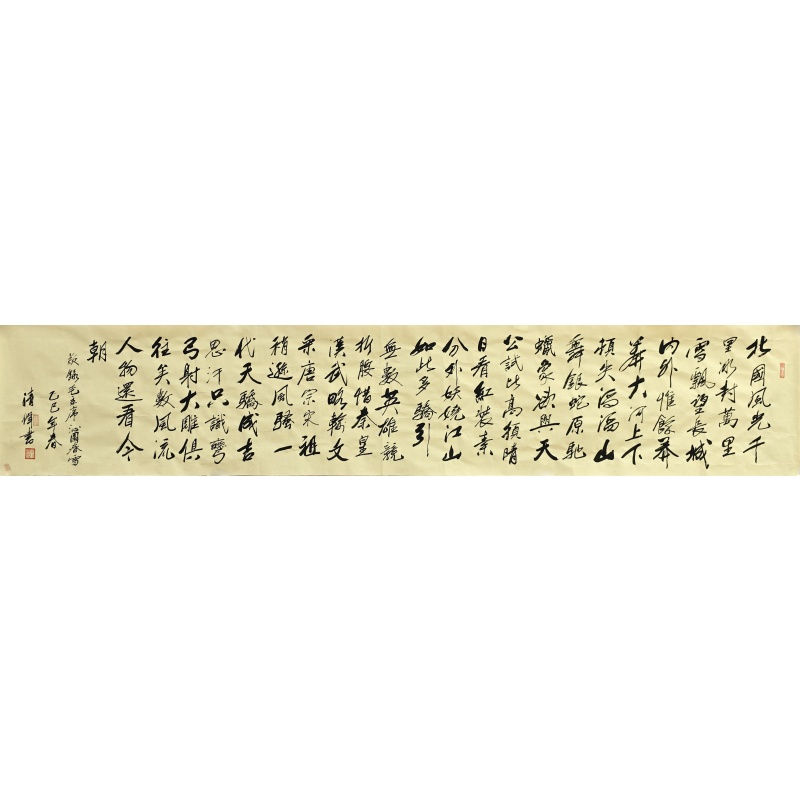 北國風光千
里冰封萬里
雪飄望長城
内外惟餘莽
莽大河上下
頓失滔滔山
舞銀蛇原馳
蠟象欲與天
公試比高須晴
日看紅裝素
分外妖嬈江山
如此多驕引
無數英雄競
折腰惜秦皇
漢武略輸文
采唐宗宋祖
稍遜風騷一
代天驕成吉
思汗只識彎
弓射大雕俱
往矣數風流
人物還看今
朝
敬錄毛主席沁園春雪
乙巳年春
清書